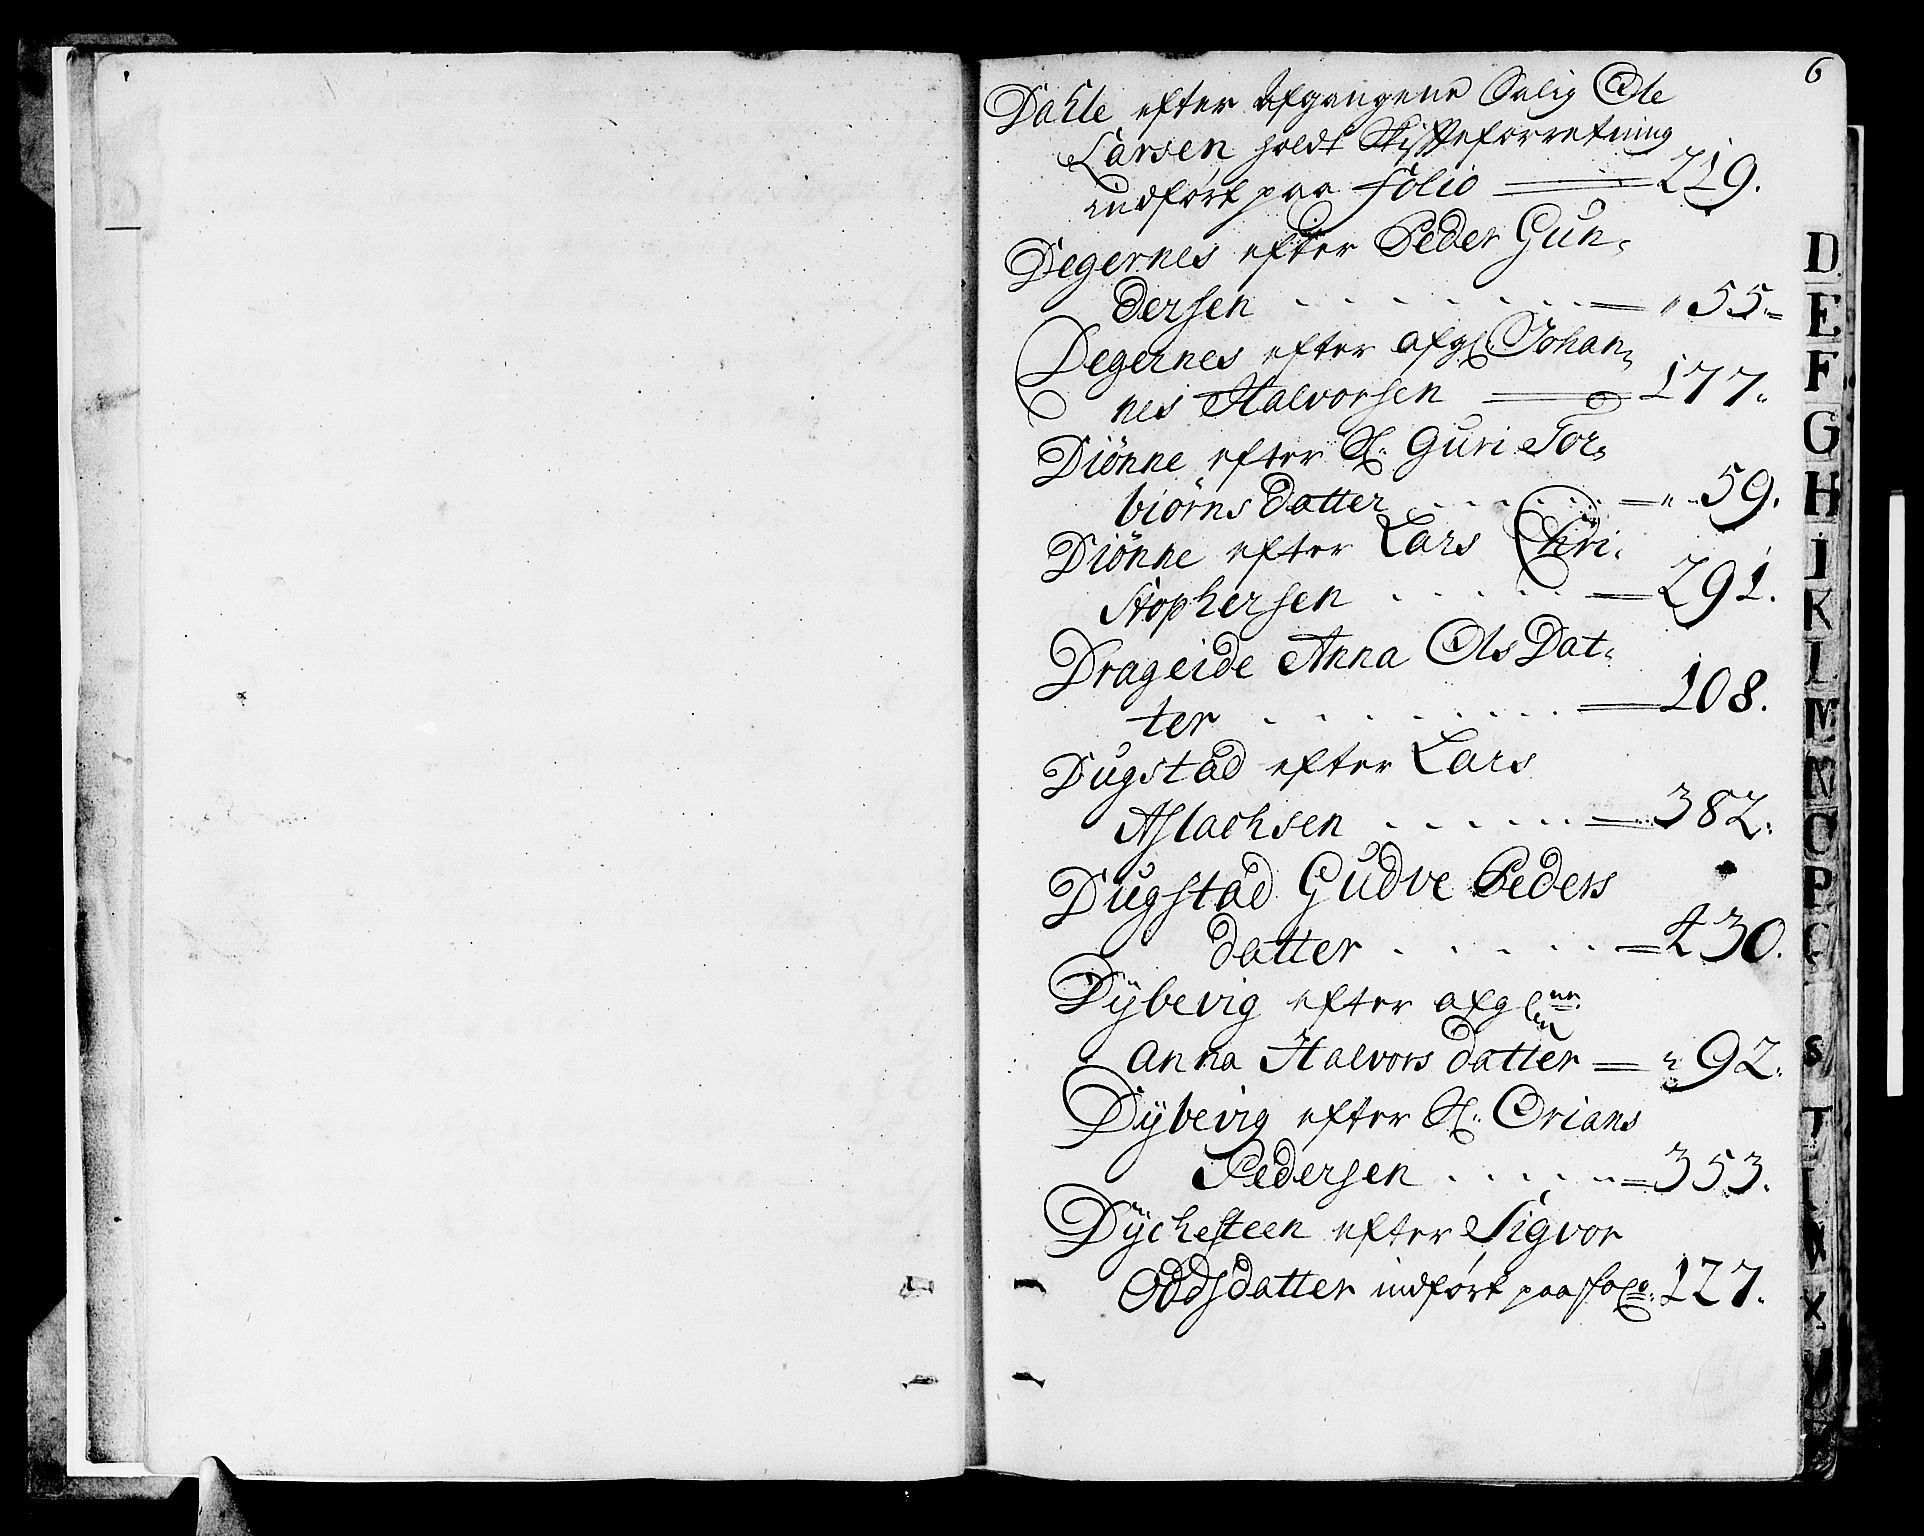 6
Dahle efter Afgangene Salig Ole
Larsen holdt Skifteforretning
indført paa Folio 219.
Degernes efter Peder Gun-
dersen 55
Degernes efter afgl. Johan-
nes Halvorsen 177.
Diönne efter Sl. Guri Tor-
biörns datter 59.
Diönne efter Lars Chri-
stophersen 291.
Drageide Anna Ols Dat-
ter 108.
Dugstad efter Lars
Aslachsen 382.
Dugstad Gudve Peders
datter 430.
Dÿbevig efter afgl
Anna Halvors datter 92.
Dÿbevig efter Sl. Orians
Pedersen 353.
Dÿchesteen efter Sigvor
Oddsdatter indført paa fol 127.
D.
E
F
G
H
I
K
L
M
N
O
P
S
T
X